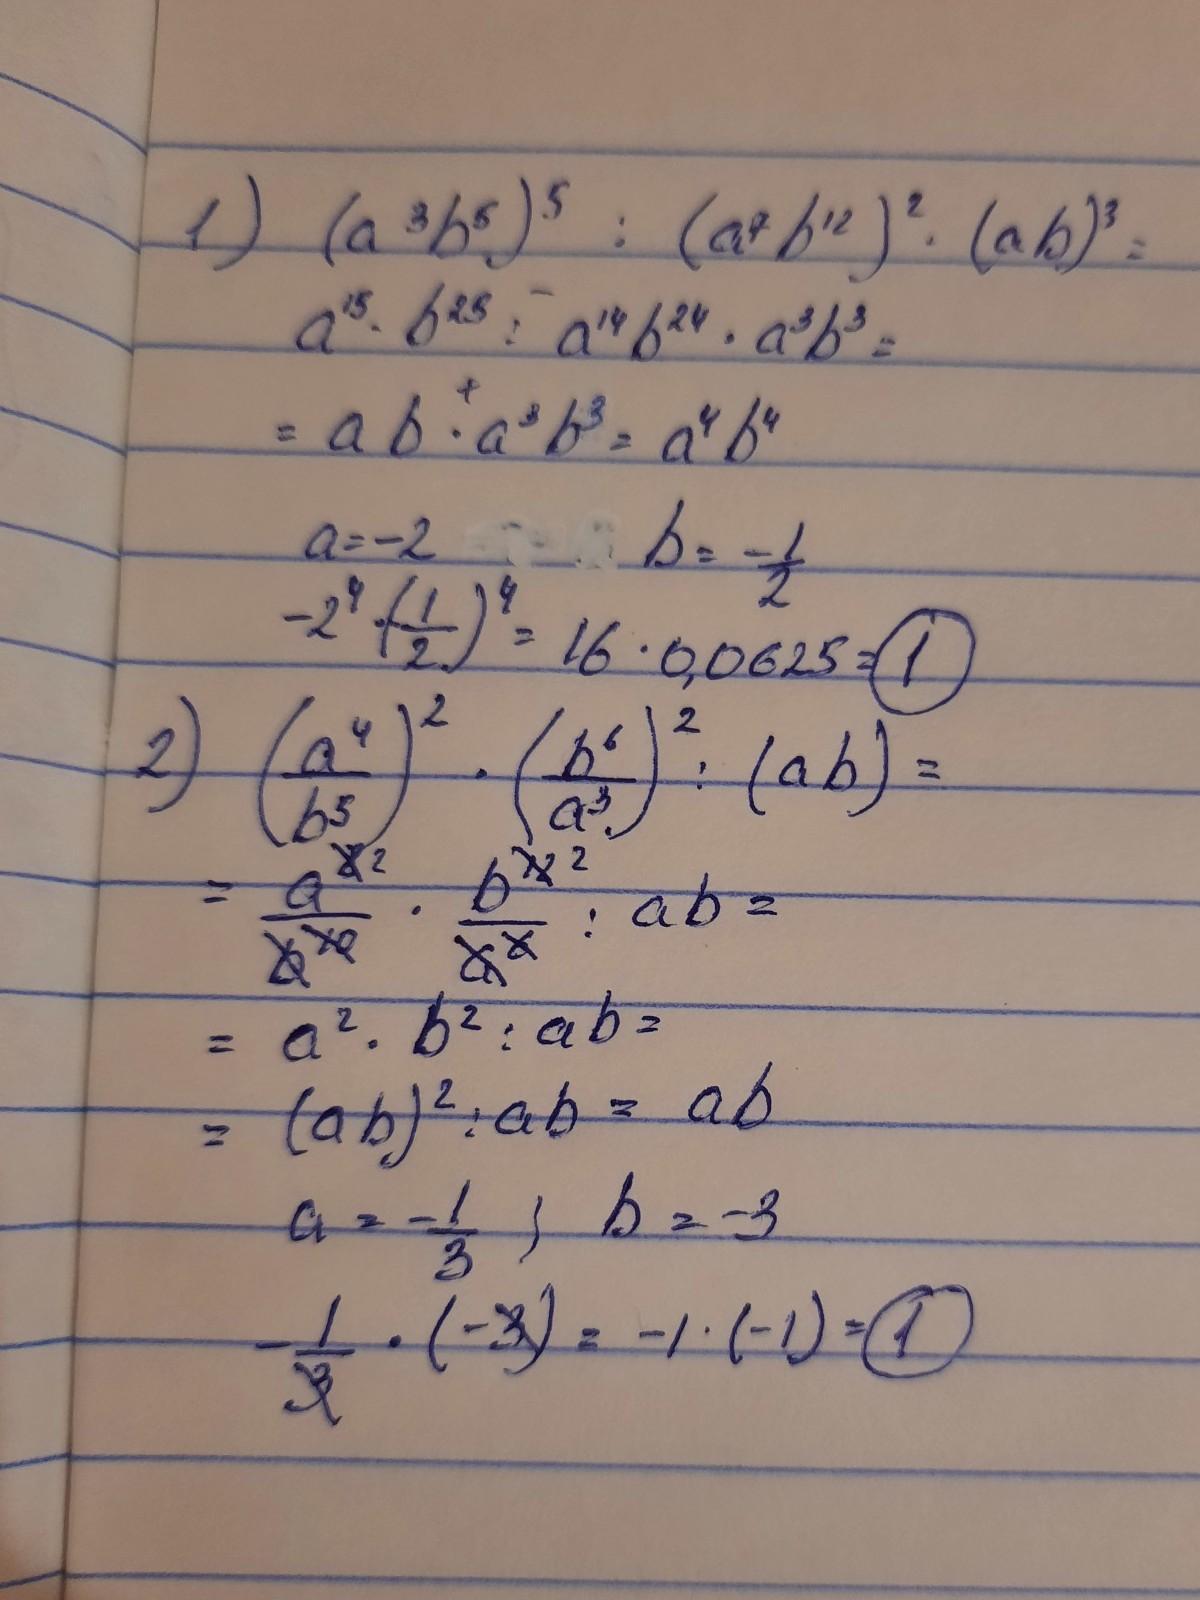 1) (a³b⁵)⁵ : (a⁷b¹²)² · (ab)³ =
a¹⁵ · b²⁵ : a¹⁴b²⁴ · a³b³ =
= ab · a³b³ = a⁴b⁴
a = -2 b = -1/2
-2⁴ · (-1/2)⁴ = 16 · 0,0625 = 1
2) (a⁴/b⁵)² · (b⁶/a³)² : (ab) =
= a²/b¹⁰ · b²/a⁶ : ab =
= a² · b² : ab =
= (ab)² : ab = ab
a = -1/3 ; b = -3
-1/3 · (-3) = -1 · (-1) = 1